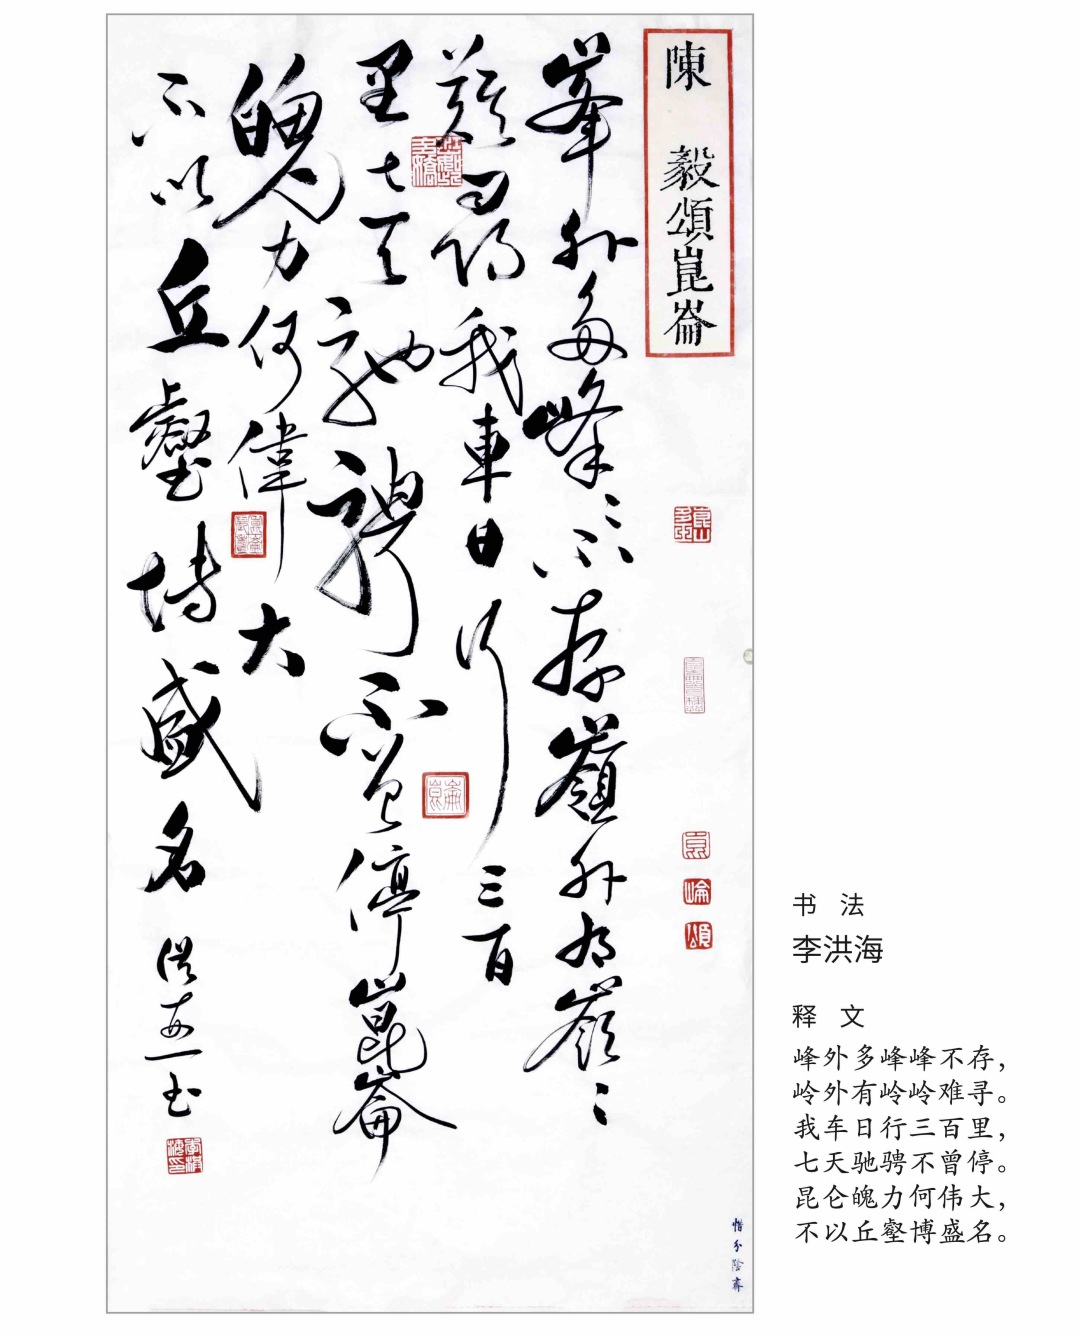 陳 毅頌崑崙
峯外多峰〻不存嶺外有嶺〻
難尋我車日行三百
里七天馳騁不曾停崑崙
魄力何偉大
不以丘壑博盛名 洪海書
惜分陰齋
书 法
李洪海
释 文
峰外多峰峰不存，
岭外有岭岭难寻。
我车日行三百里，
七天驰骋不曾停。
昆仑魄力何伟大，
不以丘壑博盛名。